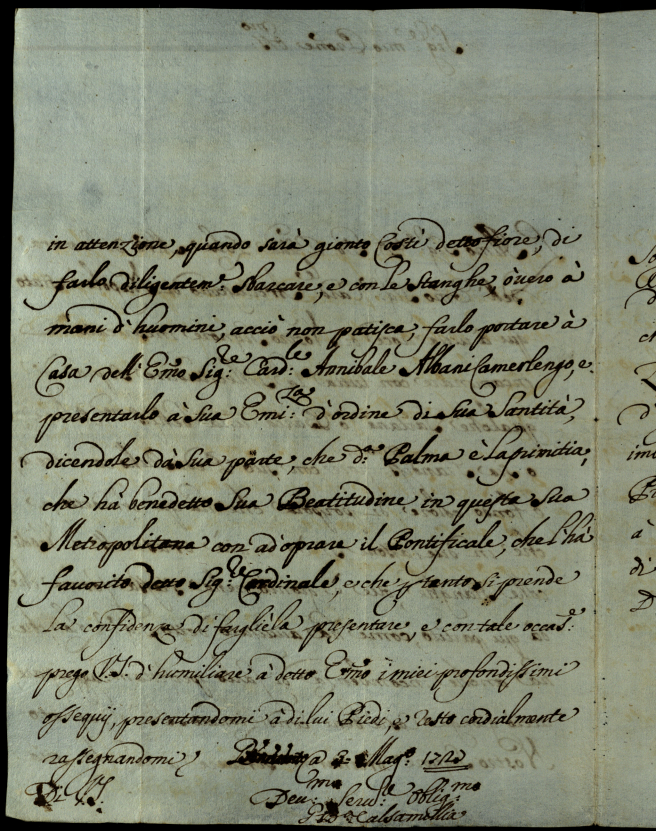 in attenzione, quando sarà gionto Costì detto fiore, di
farlo diligentem.e sbarcare, e con le stanghe, òuero à
mani d'huomini, acciò non patisca, farlo portare à
Casa dell' Em̃o Sig:re Card:le Annibale Albani Camerlengo, e
presentarlo à Sua Emi:za d'ordine di Sua Santità,
dicendole dà sua parte, che d:a Palma è la primitia,
che hà benedetto Sua Beatitudine in questa sua
Metropolitana con adoprare il Pontificale, che l'hà
fauorito detto Sig:re Cardinale, e che ꝑ tanto si prende
la confidenza di fargliela presentare, e con tale occas:e
prego V.S. d'humiliare à detto Em̃o i miei profondissimi
ossequij, presentandomi à di lui Piedi, e resto cordialmente
rassegnandomi a 2 Mag:o
Di V.S.
Deu:mo Seru:le Oblig:mo